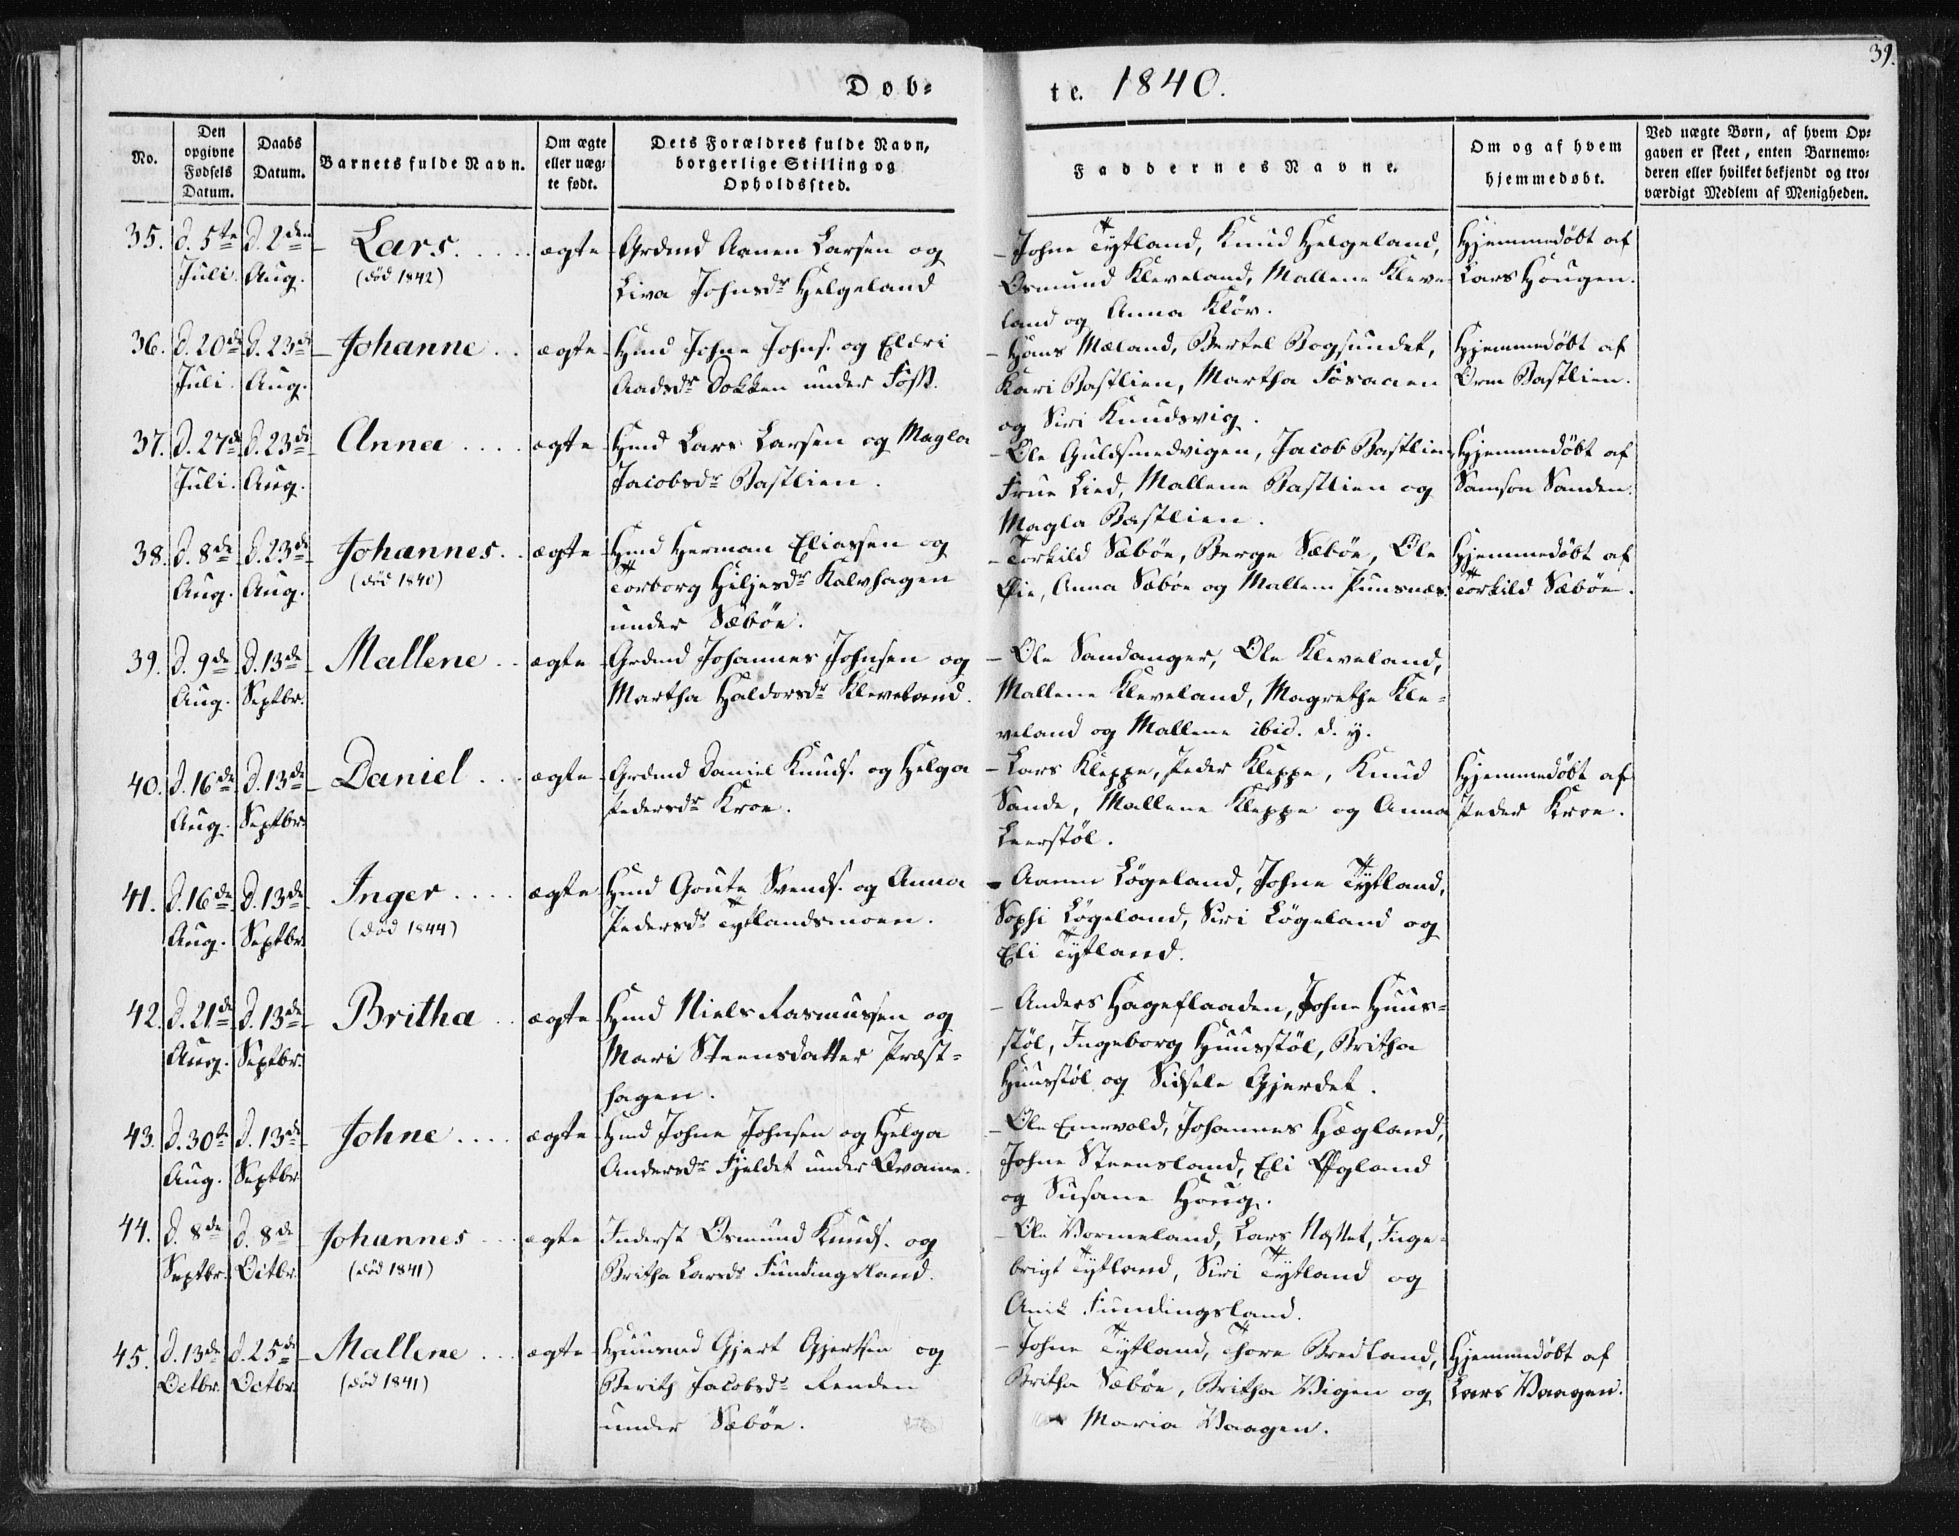 39.
Døb=
te. 1840.
No.
Den opgivne Fødsels Datum.
Daabs Datum.
Barnets fulde Navn.
Om ægte eller uæg- te født.
Dets Forældres fulde Navn, borgerlige Stilling og Opholdssted.
Faddernes Navne.
Om og af hvem hjemmedøbt.
Ved uægte Børn, af hvem Op= gaven er skeet, enten Barnemo= deren eller hvilket bekjendt og tro= værdigt Medlem af Menigheden.
35. d. 5te Juli. d. 2den Aug. Lars. (død 1842) ægte
Grdmd Aanen Larsen og
Liva Johnsdr Helgeland
Johne Tytland, Knud Helgeland,
Osmund Kleveland, Mallene Kleve
land og Anna Kløv.
Hjemmedøbt af
Lars Hougen.
36. d. 20de Juli. d. 23de Aug. Johanne ægte
Hmd Johne Johns. og Elæri
Aadsdr Dokken under Foss.
Hans Mæland, Bertel Bogsundet,
Kari Bastlien, Martha Fosaaen
og Siri Knudsvig.
Hjemmedøbt af
Orm Bastlien.
37. d. 27de Juli. d. 23de Aug. Anna ægte
Hmd Lars Larsen og Magla
Jacobsdr Bastlien.
Ole Guldsmedvigen, Jacob Bastlien
Frue Lied, Mallene Bastlien og
Magla Bastlien.
Hjemmedøbt af
Samson Sanden.
38. d. 8de Aug. d. 23de Aug. Johannes (død 1840) ægte
Hmd Herman Eliassen og
Torborg Hiljesdr Kalvhagen
under Sæbøe.
Torkild Sæbøe, Berge Sæbøe, Ole
Øie, Anna Sæbøe og Mallene
Hjemmedøbt af
Torkild Sæbøe.
39. d. 9de Aug. d. 13de Septbr. Mallene ægte
Grdmd Johannes Johnsen og
Martha Haldorsdr Kleveland.
Ole Sandanger, Ole Kleveland,
Mallene Kleveland, Magrethe Kle=
veland og Mallene ibid. d. y.
40. d. 16de Aug. d. 13de Septbr. Daniel ægte
Grdmd Daniel Knuds. og Helga
Pedersdr Kroe.
Lars Kleppe, Peder Kleppe, Knud
Sande, Mallene Kleppe og Anna
Leerstøl.
Hjemmedøbt af
Peder Kroe.
41. d. 16de Aug. d. 13de Septbr. Inger (død 1844) ægte
Hmd Goute Svends. og Anna
Pedersdr Tytlandsmoen.
Aanen Løgeland, Johne Tytland,
Sophi Løgeland, Siri Løgeland og
Eli Tytland.
42. d. 21de Aug. d. 13de Septbr. Britha ægte
Hmd Niels Rasmussen og
Mari Steensdatter Præst=
hagen.
Anders Hageflaaden, Johne Huus=
støl, Ingeborg Huusstøl, Britha
Huusstøl og Sidsele Gjerdet.
43. d. 30te Aug. d. 13de Septbr. Johne ægte
Hmd Johne Johnsen og Helga
Andersdr Fjeldet under Qvame.
Ole Enevold, Johannes Hægland,
Johne Steensland, Eli Øgland
og Susane Houg.
44. d. 8de Septbr. d. 8de Octbr. Johannes (død 1841) ægte
Inderst Osmund Knuds. og
Britha Larsdr Fundingsland.
Ole Vormeland, Lars Nættet, Inge=
brigt Tytland, Siri Tytland og
Anik Fundingsland.
45. d. 13de Octbr. d. 25de Octbr. Mallene (død 1841) ægte
Huusmd Gjert Gjertsen og
Berith Jacobsdr Renden
under Sæbøe.
Johne Tytland, Thore Bredland,
Britha Sæbøe, Britha Vigen og
Maria Vaagen.
Hjemmedøbt af
Lars Vaagen.